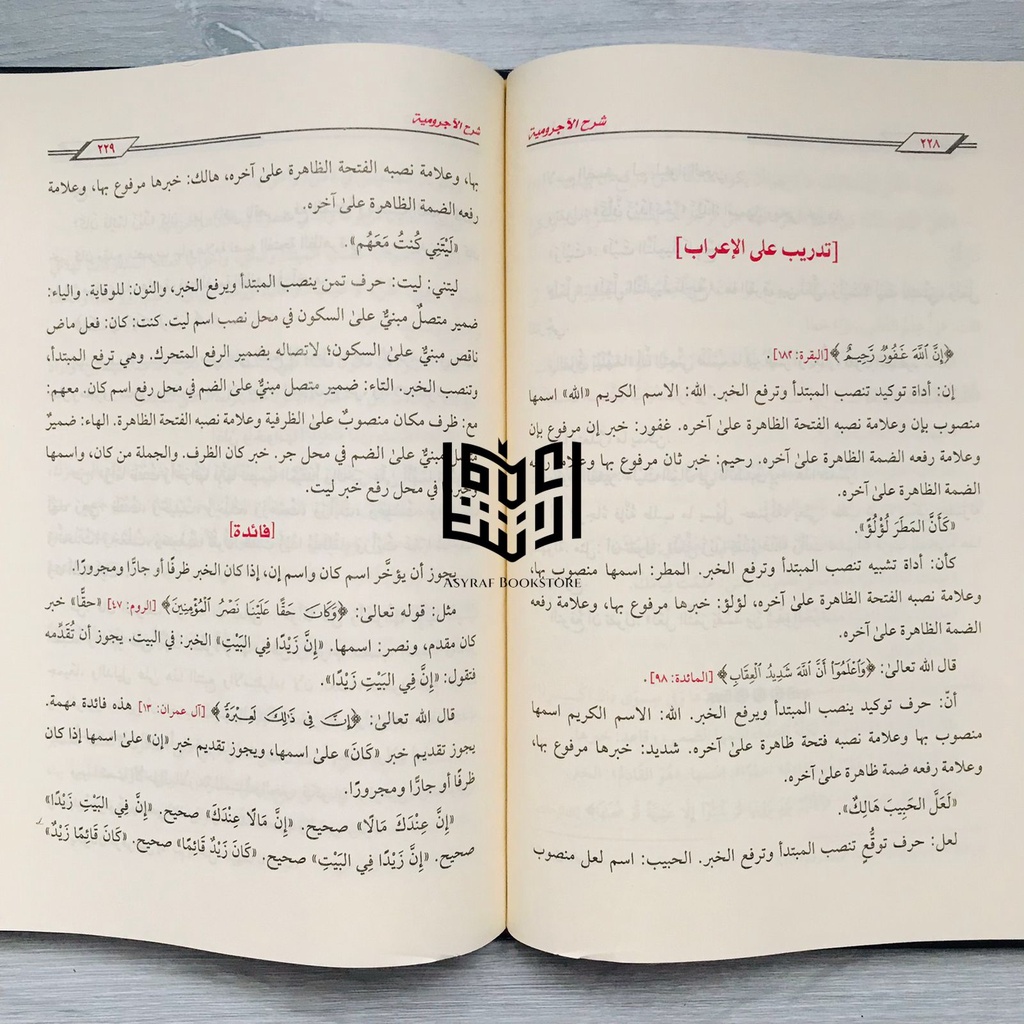 شرح الآجرومية
٢٢٨
[تدريب على الإعراب]
﴿إِنَّ ٱللَّهَ غَفُورٌ رَّحِيمٌ﴾ [البقرة: ١٨٢].
إن: أداة توكيد تنصب المبتدأ وترفع الخبر. الله: الاسم الكريم «الله» اسمها
منصوب بإن وعلامة نصبه الفتحة الظاهرة علىٰ آخره. غفور: خبر إن مرفوع بإن
وعلامة رفعه الضمة الظاهرة علىٰ آخره. رحيم: خبر ثان مرفوع بها وعلامة رفعه
الضمة الظاهرة علىٰ آخره.
«كَأَنَّ المَطَرَ لُؤْلُؤٌ».
كأن: أداة تشبيه تنصب المبتدأ وترفع الخبر. المطر: اسمها منصوب بها،
وعلامة نصبه الفتحة الظاهرة علىٰ آخره، لؤلؤ: خبرها مرفوع بها، وعلامة رفعه
الضمة الظاهرة علىٰ آخره.
قال الله تعالىٰ: ﴿وَٱعْلَمُوٓا أَنَّ ٱللَّهَ شَدِيدُ ٱلْعِقَابِ﴾ [المائدة: ٩٨].
أنّ: حرف توكيد ينصب المبتدأ ويرفع الخبر. الله: الاسم الكريم اسمها
منصوب بها وعلامة نصبه فتحة ظاهرة علىٰ آخره. شديد: خبرها مرفوع بها،
وعلامة رفعه ضمة ظاهرة علىٰ آخره.
«لَعَلَّ الحَبِيبَ هَالِكٌ».
لعل: حرف توقُّعٍ تنصب المبتدأ وترفع الخبر. الحبيب: اسم لعل منصوب
شرح الآجرومية
٢٢٩
بها، وعلامة نصبه الفتحة الظاهرة علىٰ آخره، هالك: خبرها مرفوع بها، وعلامة
رفعه الضمة الظاهرة علىٰ آخره.
«لَيْتَنِي كُنْتُ مَعَهُم».
ليتني: ليت: حرف تمن ينصب المبتدأ ويرفع الخبر، والنون: للوقاية. والياء:
ضمير متصلٌ مبنيٌّ علىٰ السكون في محل نصب اسم ليت. كنت: كان: فعل ماض
ناقص مبنيٌّ علىٰ السكون؛ لاتصاله بضمير الرفع المتحرك. وهي ترفع المبتدأ،
وتنصب الخبر. التاء: ضمير متصل مبنيٌّ علىٰ الضم في محل رفع اسم كان. معهم:
مع: ظرف مكان منصوبٌ علىٰ الظرفية وعلامة نصبه الفتحة الظاهرة. الهاء: ضميرٌ
متصل مبنيٌّ علىٰ الضم في محل جر. خبر كان الظرف. والجملة من كان، واسمها
وخبرها في محل رفع خبر ليت.
[فائدة]
يجوز أن يؤخَّر اسم كان واسم إن، إذا كان الخبر ظرفًا أو جارًّا ومجرورًا.
مثل: قوله تعالىٰ: ﴿وَكَانَ حَقًّا عَلَيْنَا نَصْرُ ٱلْمُؤْمِنِينَ﴾ [الروم: ٤٧] «حقًّا» خبر
كان مقدم، ونصر: اسمها. «إِنَّ زَيْدًا فِي البَيْتِ» الخبر: في البيت. يجوز أن تُقَدِّمه
فتقول: «إِنَّ فِي البَيْتِ زَيْدًا».
قال الله تعالىٰ: ﴿إِنَّ فِي ذَٰلِكَ لَعِبْرَةً﴾ [آل عمران: ١٣] هذه فائدة مهمة.
يجوز تقديم خبر «كَانَ» علىٰ اسمها، ويجوز تقديم خبر «إن» علىٰ اسمها إذا كان
ظرفًا أو جارًّا ومجرورًا.
«إِنَّ عِنْدَكَ مَالًا» صحيح. «إِنَّ مَالًا عِنْدَكَ» صحيح. «إِنَّ فِي البَيْتِ زَيْدًا»
صحيح. «إِنَّ زَيْدًا فِي البَيْتِ» صحيح. «كَانَ زَيْدٌ قَائِمًا» صحيح. «كَانَ قَائِمًا زَيْدٌ»
ASYRAF BOOKSTORE